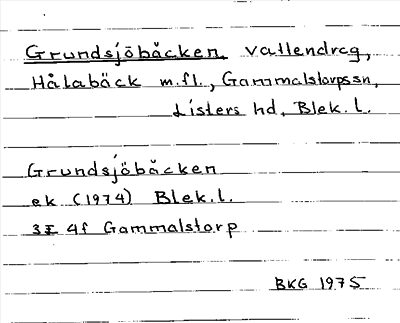 Grundsjöbäcken, vattendrag,
Hålabäck m.fl., Gammalstorpssn,
Listers hd, Blek. l.
Grundsjöbäcken
ek (1974) Blek. l.
3E 4f Gammalstorp
BKG 1975